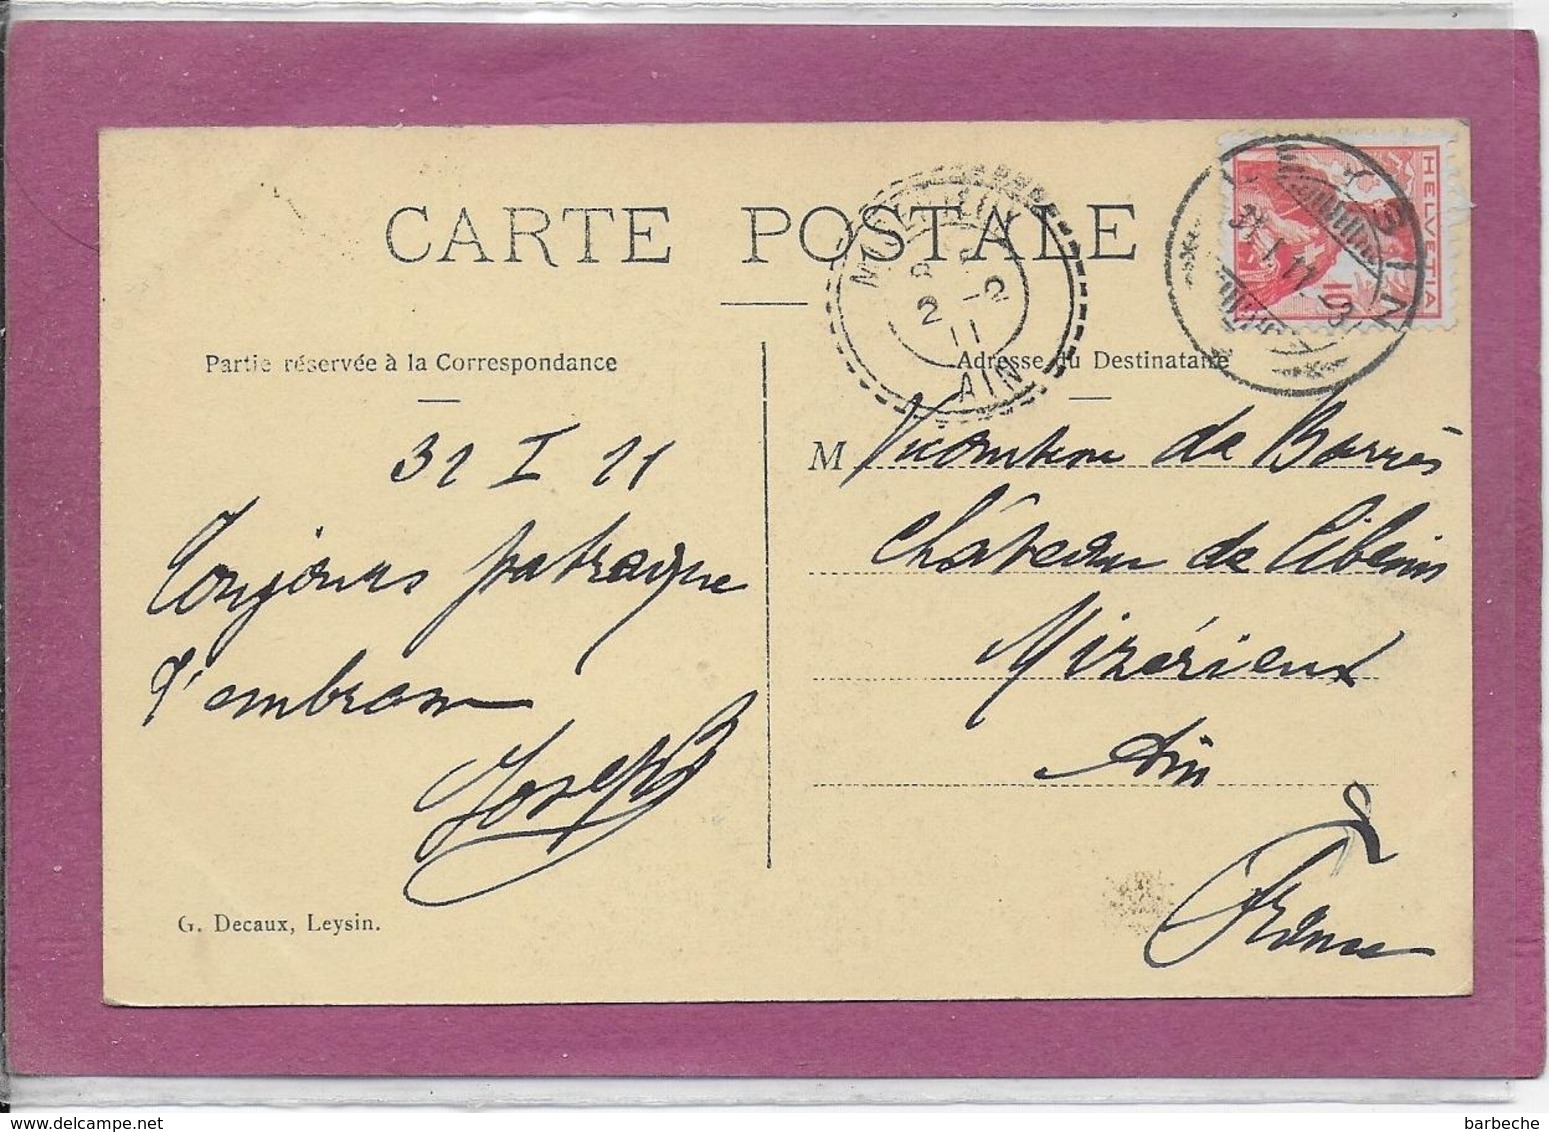 CARTE POSTALE
Partie réservée à la Correspondance
31 I 11
Toujours patraque
J'embrasse
Joseph
G. Decaux, Leysin.
Adresse du Destinataire
M Vicomtesse de Barrès
Château de Cibeins
Mizérieux
Ain
France
MIZERIEUX
2 -2
11
AIN
LEYSIN
31.I.11.-3
HELVETIA
10
barbeche